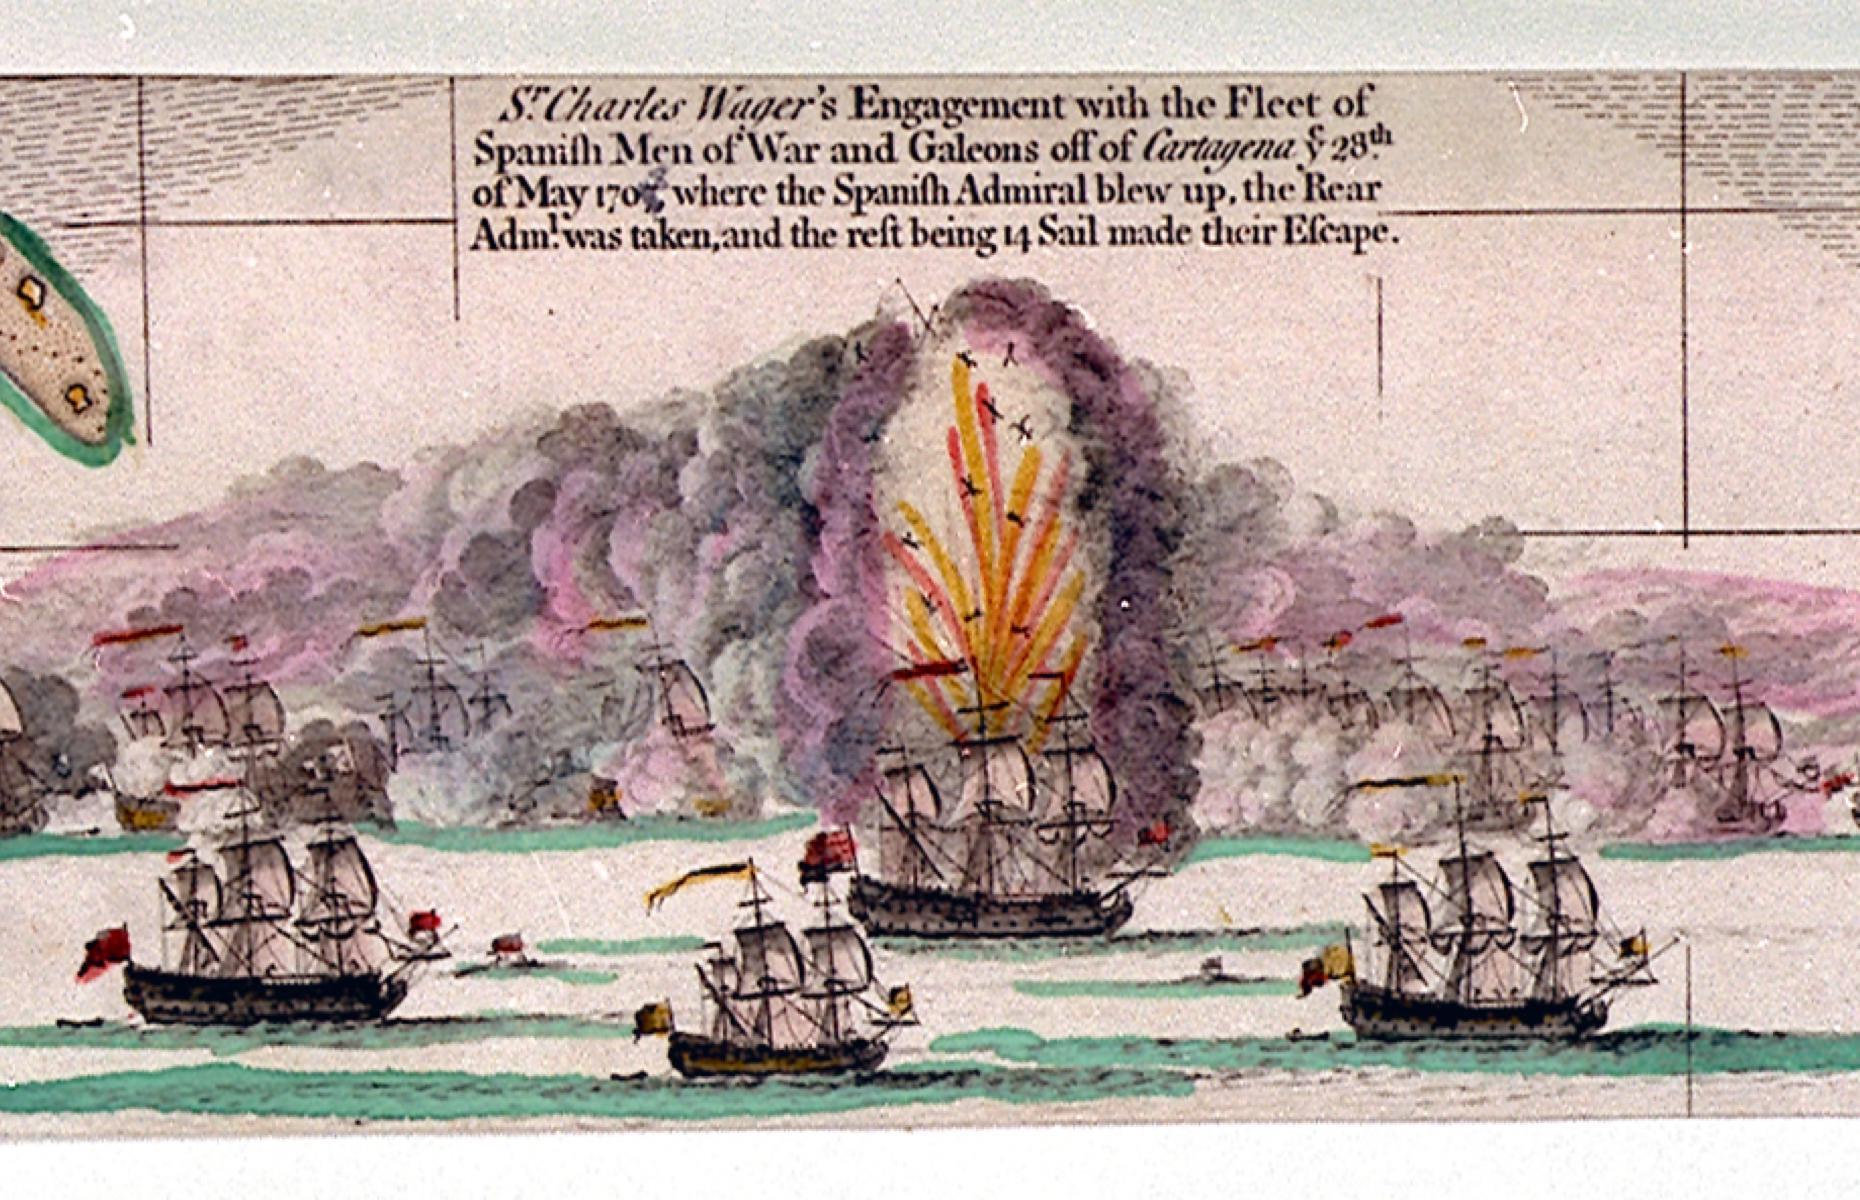 Sr. Charles Wager's Engagement with the Fleet of
Spaniſh Men of War and Galeons off of Cartagena ye 28th.
of May 170 where the Spaniſh Admiral blew up, the Rear
Adml. was taken, and the reſt being 14 Sail made their Eſcape.